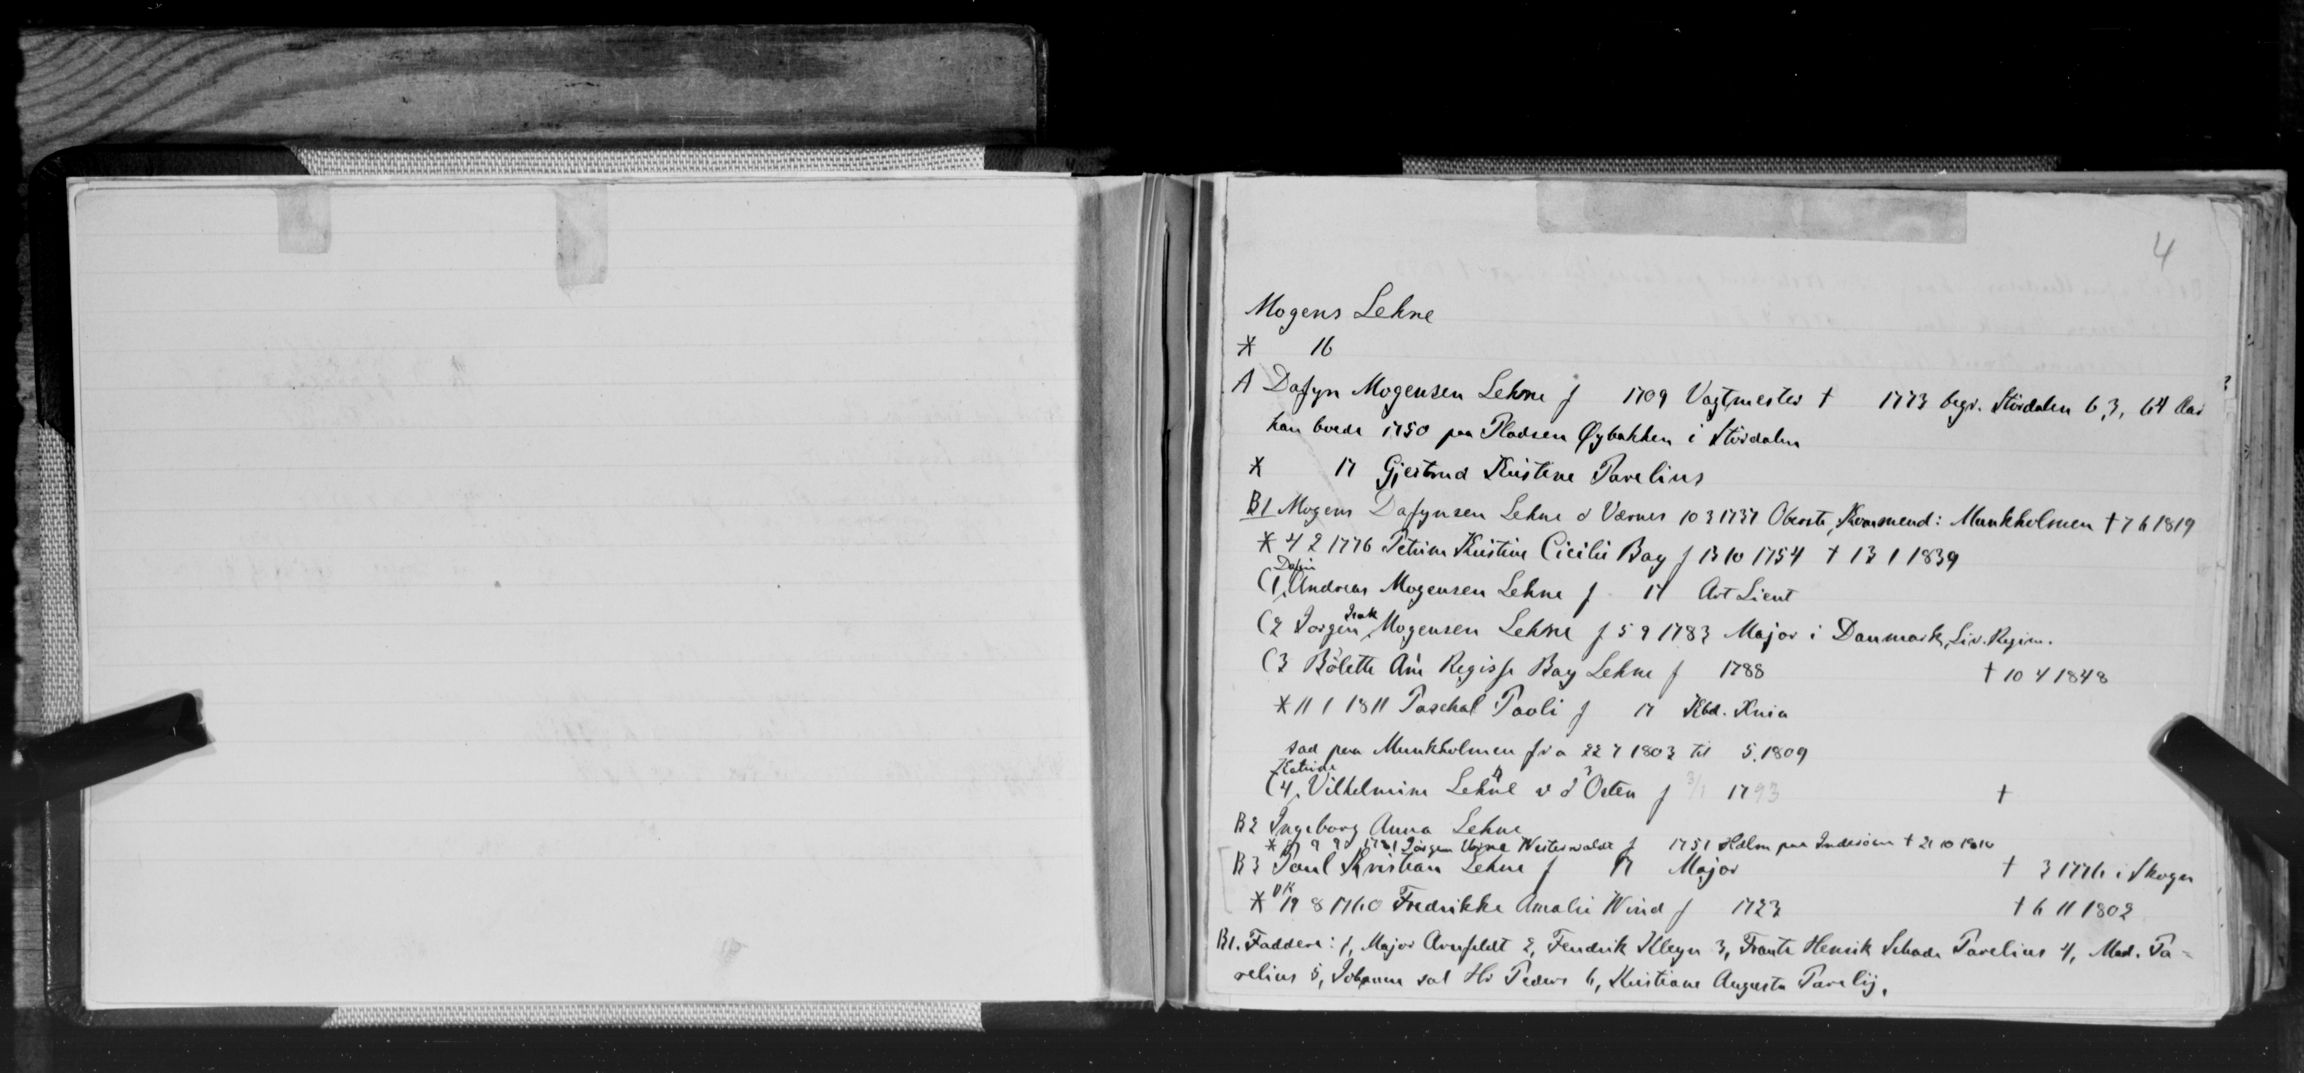 4
Mogens Lehne
* 16
A Dafyn Mogensen Lehne f 1709 Vagtmester † 1773 begr. Stördalen 6,3, 64 Aar
han boede 1750 paa Pladsen Øybakken i Stördalen
* 17 Gjertrud Kristine Parelius
B1 Mogens Dafynsen Lehne d Værnes 10 3 1737 Oberste, Kommend: Munkholmen † 7 6 1819
* 4 2 1776 Petrine Kristine Cicilie Bay f 13 10 1754 † 13 1 1839
Dafin
(1, Andreas Mogensen Lehne f 17 Art Lieut
Isak
(2 Jorgen, Mogensen Lehne f 5 9 1783 Major i Danmark, Liv. Regim.
(3 Bolette Regisse Bay Lehne f 1788 † 10 4 1848
* 11 1 1811 Paschal Paoli f 17 Kbd. Knia
sad paa Munkholmen fra 22 7 1803 til 5. 1809
Katrine
(4, Vilhelmine Lehne v d Osten f 3/1 1793 †
B2 Ingeborg Anna Lehne
* 1781 Jörgen Westerwaldt f 1751 Holm paa Inderöen † 21 10
B3 Paul Kristian Lehne f 17 Major † 3 1776 i Skogn
* 19 8 1760 Fredrikke Amalie Wind f 1723 † 6 11 1802
B1. Faddere: 1, Major Arnfeldt 2, Fendrik 3, Frants Henrik Schade Parelius 4, Mad. Pa-
relius 5, Johanne sal Hr Peders 6, Kristiane Augusta Parelij.